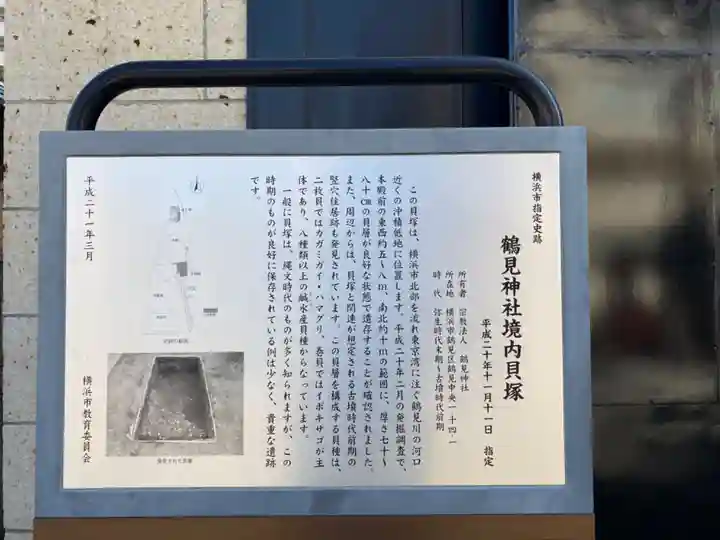 横浜市指定史跡
鶴見神社境内貝塚
平成二十年十一月十一日 指定
所有者 宗教法人 鶴見神社
所在地 横浜市鶴見区鶴見中央一-十四-一
時 代 弥生時代末期~古墳時代前期
この貝塚は、横浜市北部を流れ東京湾に注ぐ鶴見川の河口
近くの沖積低地に位置します。平成二十年二月の発掘調査で、
本殿前の東西約五~八m、南北約十mの範囲に、厚さ七十~
八十㎝の貝層が良好な状態で遺存することが確認されました。
また、周辺からは、貝塚と関連が想定される古墳時代前期の
竪穴住居跡も発見されています。この貝層を構成する貝種は、
二枚貝ではカガミガイ・ハマグリ、巻貝ではイボキサゴが主
体であり、八種類以上の鹹水産貝種からなっています。
一般に貝塚は、縄文時代のものが多く知られますが、この
時期のものが良好に保存されている例は少なく、貴重な遺跡
です。
平成二十一年三月
横浜市教育委員会